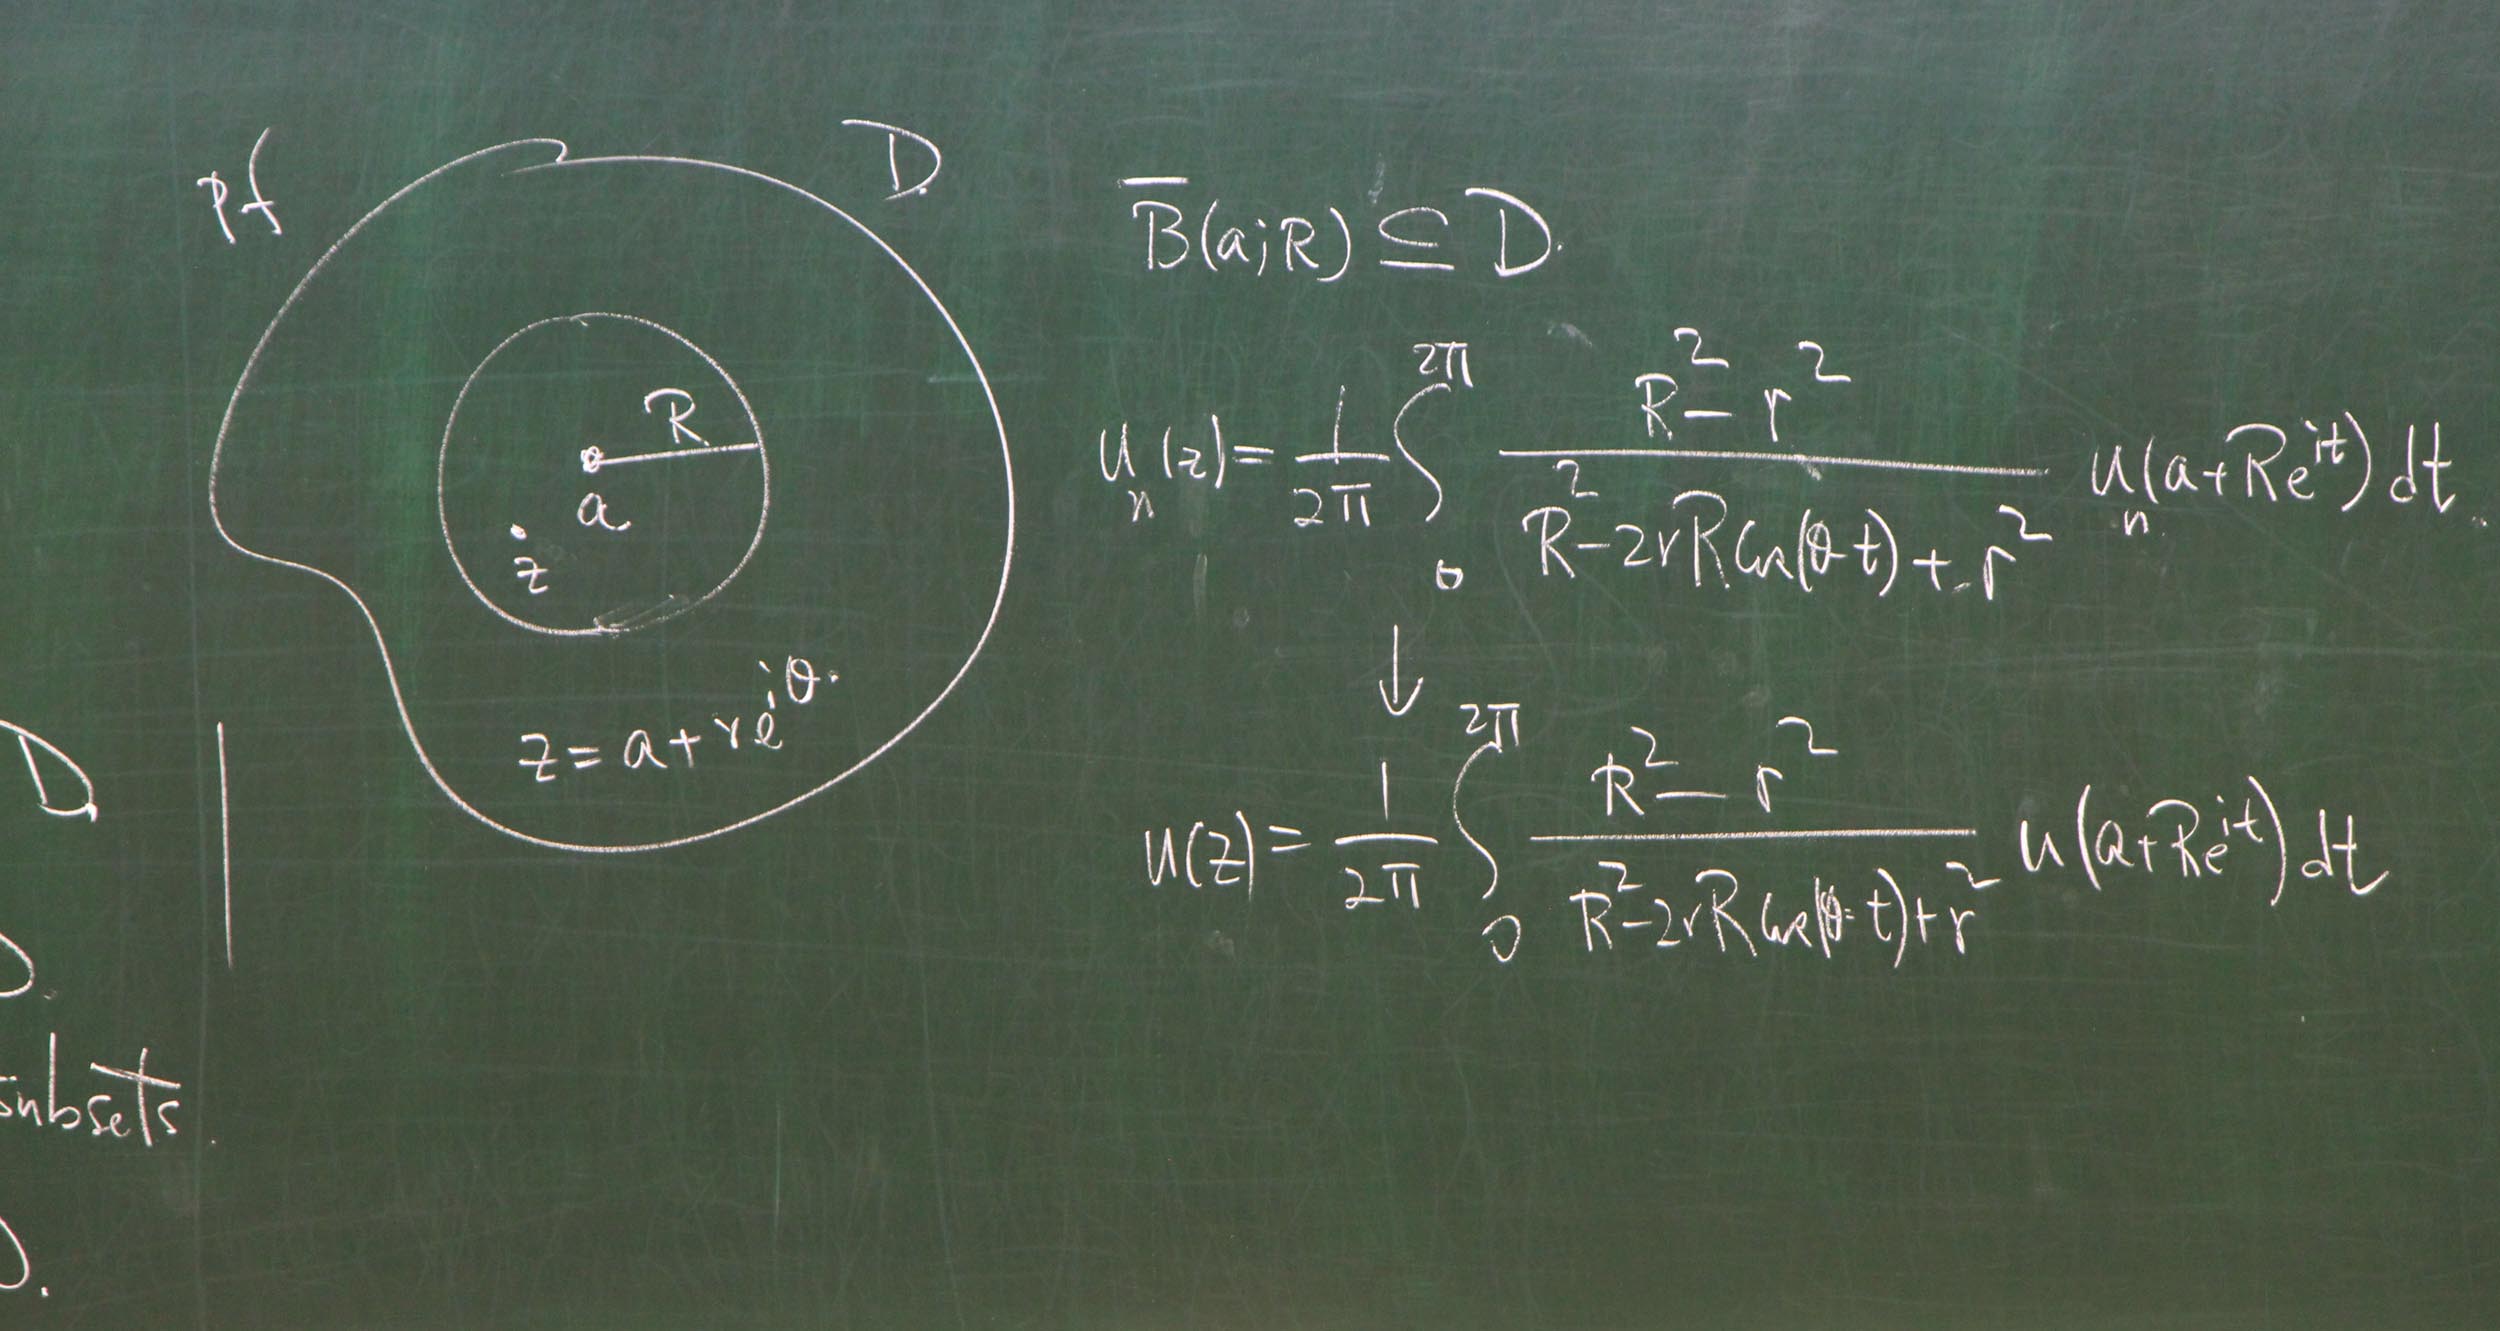 Pf
D.
R
a
z
z = a + re^{iθ}.
B̅(a;R) ⊆ D.
u_n(z) = \frac{1}{2π} ∫_0^{2π} \frac{R^2 - r^2}{R^2 - 2rR cos(θ-t) + r^2} u_n(a+Re^{it}) dt.
↓
u(z) = \frac{1}{2π} ∫_0^{2π} \frac{R^2 - r^2}{R^2 - 2rR cos(θ-t) + r^2} u(a+Re^{it}) dt
D.
subsets.